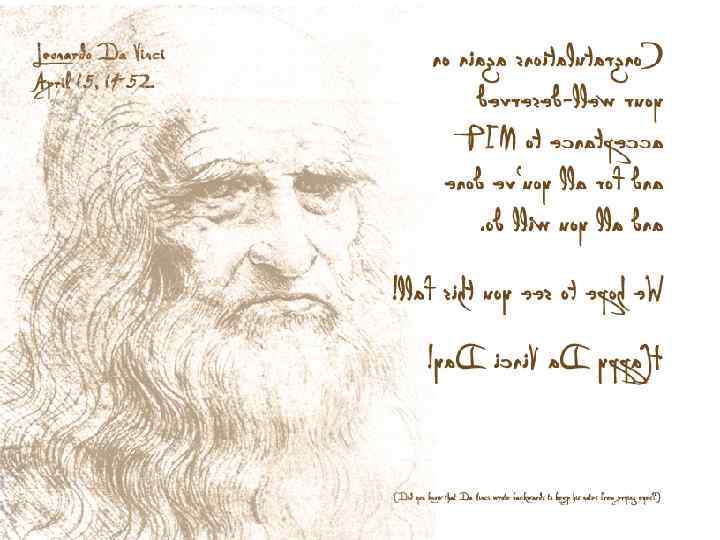 Leonardo Da Vinci
April 15, 1452
Congratulations again on
your well-deserved
acceptance to MIT
and for all you've done
and all you will do.
We hope to see you this fall!
Happy Da Vinci Day!
(Did you know that Da Vinci wrote backwards to keep his notes from prying eyes?)